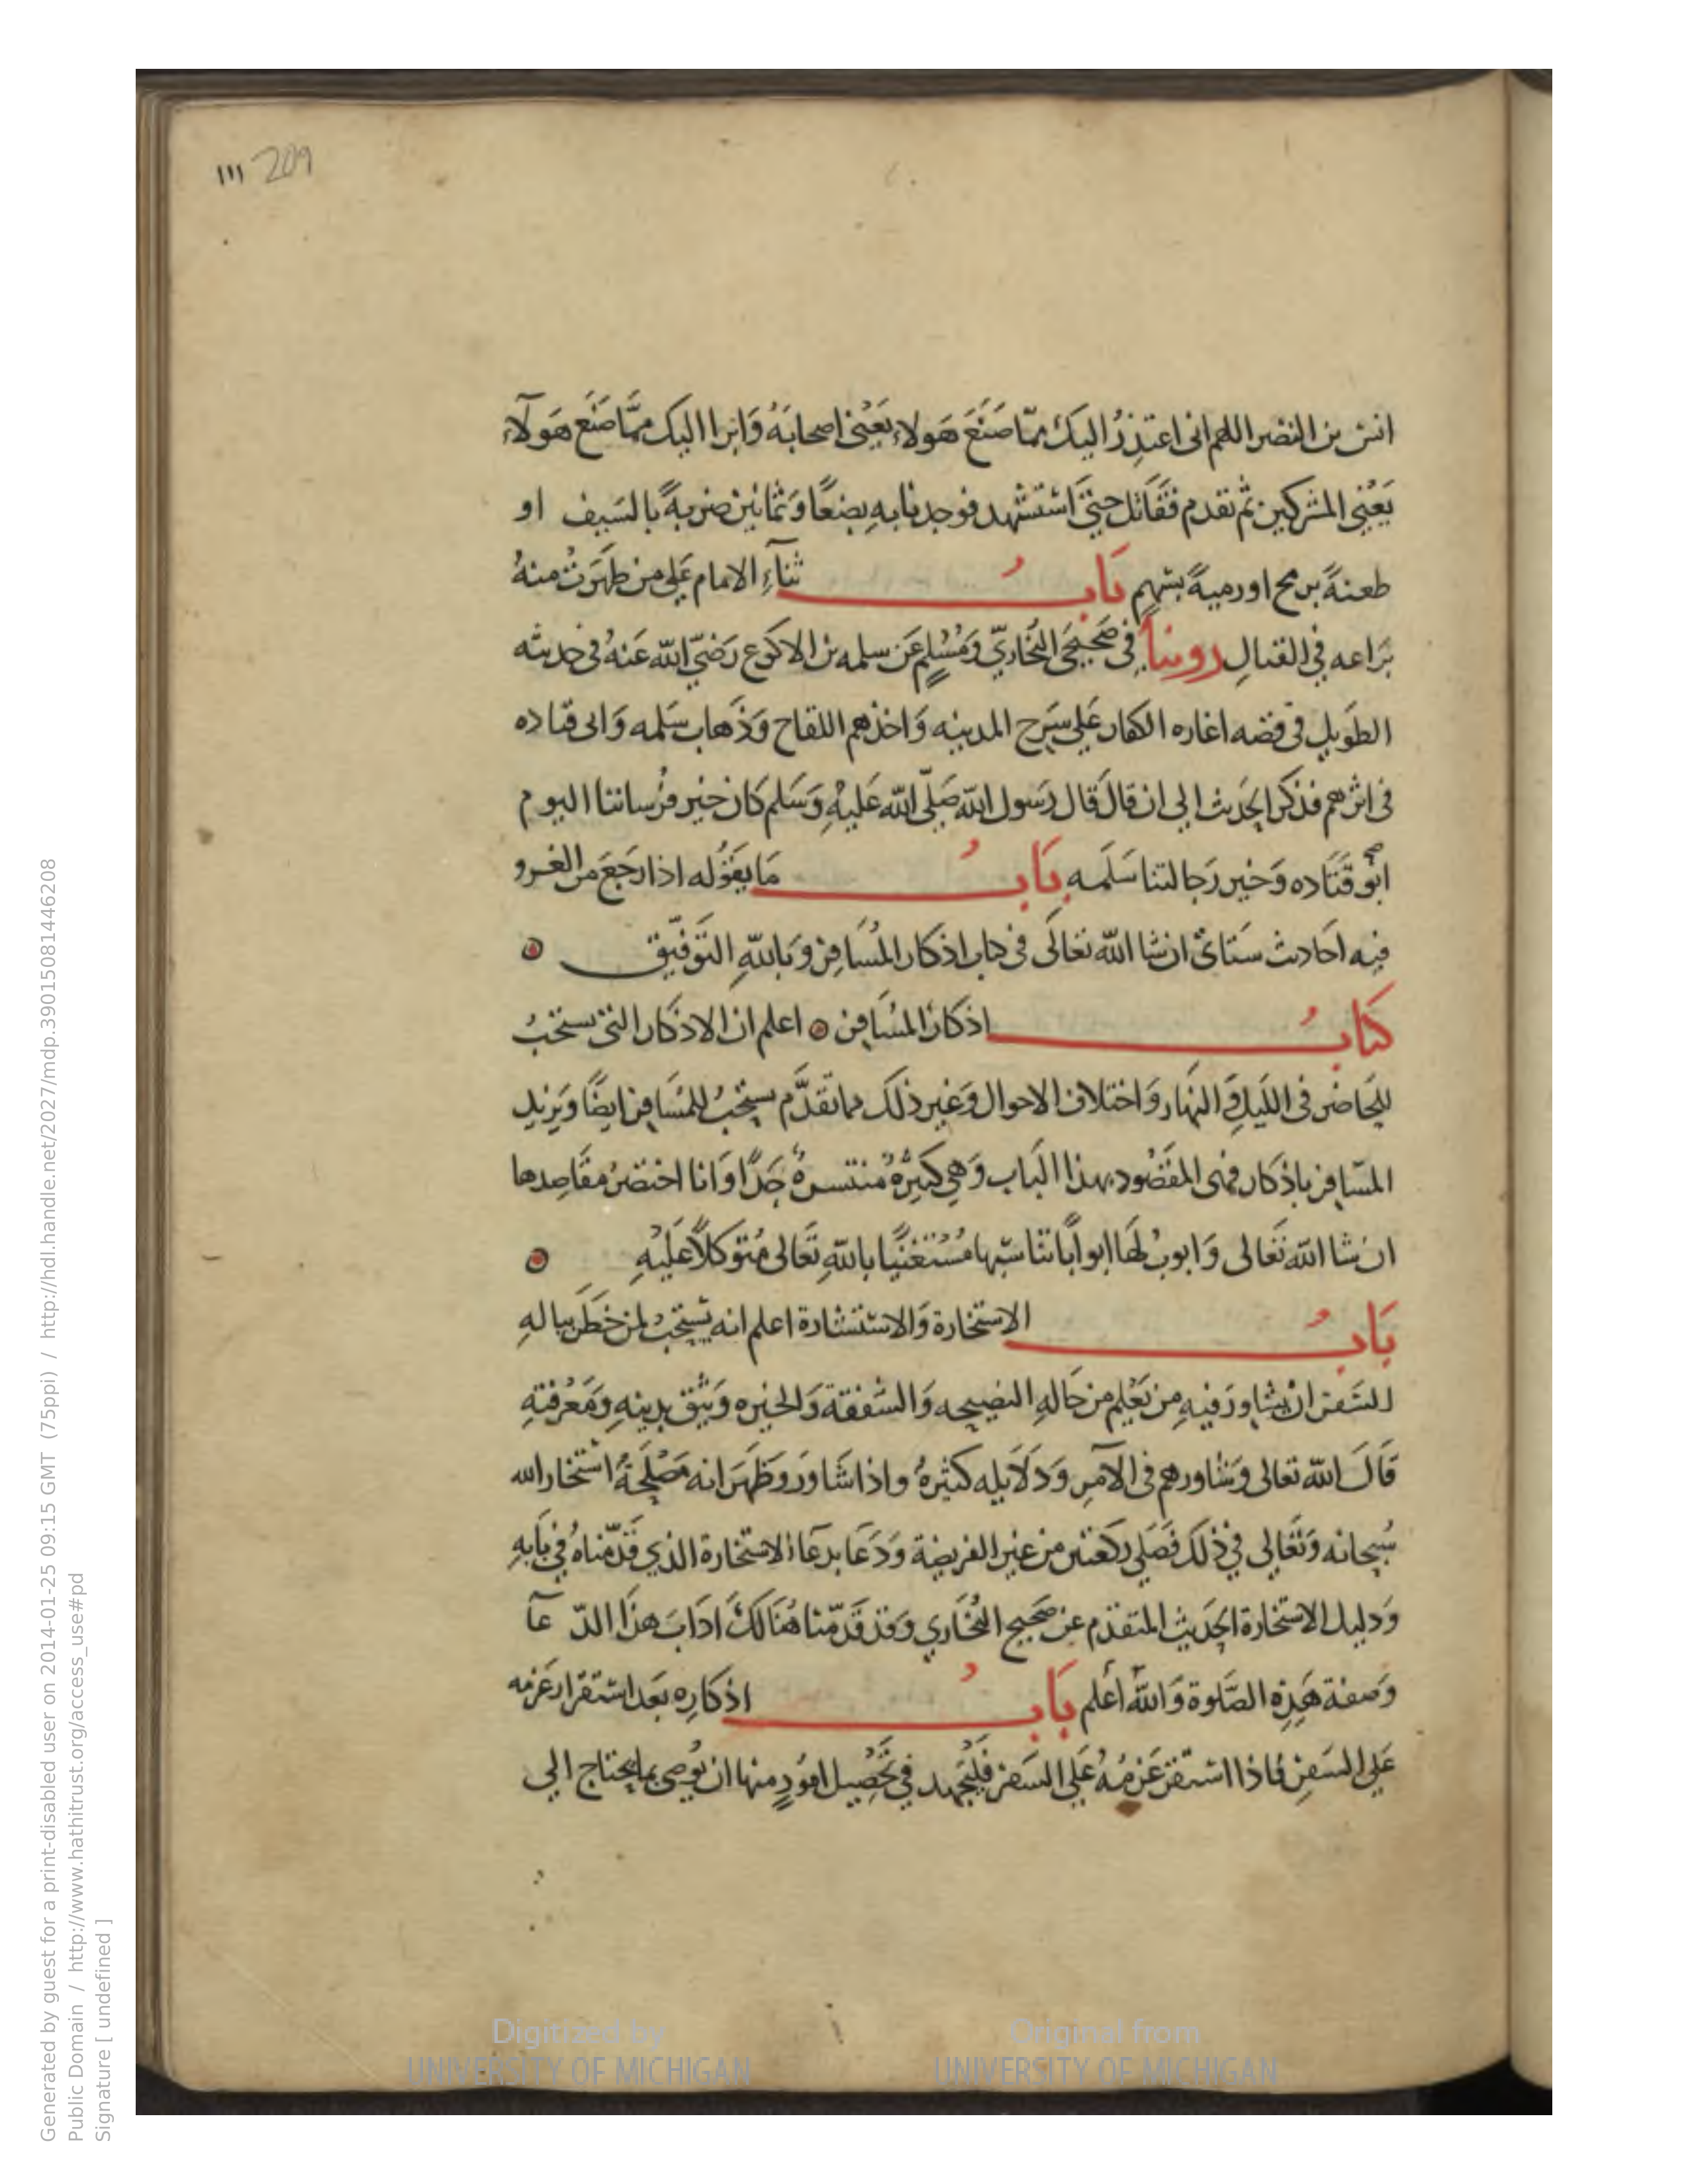 ١١١ 209
انس بن النضر اللهم انى اعتذِرُ اليكَ ممّا صَنَعَ هَولاءِ يَعْنى اصحابَهُ وَابرا اليك ممَّا صَنَع هَولآءِ
يَعْنِي المشركين ثم تقدم فَقَاتَل حتىَّ اسْتشهد فوجدنا بهِ بِضعًا وَثمانين ضربةً بالسَيف او
طعنةً برمح اورميةً بسَهمٍ بَابُ ثنآءِ الامام عَلي من ظهَرَتْ منهُ
بَراعه في القتالِ روينا في صَحيحَي البُخاريّ وَمُسْلمٍ عَن سلمه بن الاكوَع رَضيَ الله عَنهُ في حديثه
الطَويل في قصه اغاره الكفار عَلي سَرح المدينه وَاخذهم اللقاح وَذَهاب سَلمه وَابى قتاده
في اثرهم فذكر الحَديث الي ان قالَ قَال رَسول الله صَلّى الله عَليهِ وَسَلم كَان خيْر فرْساننا اليوم
ابُو قتَاده وَخَير رَجالتنا سَلَمه بَابُ مَا يَقوُله اذا رجَعَ من الغزو
فيه احَاديث سَتاتىْ ان شا الله تعَالَى في كتاب اذكار المُسَافر وَباللهِ التَوفيّق
كتَابُ اذكَار المسَافر اعلم ان الاذكار التى يستحَبُ
للحَاضر في اللَيل وَالنهَار وَاختلاف الاحوال وَغير ذلَك مما تقدَّم يستحَبُ للمُسَافر ايضًا وَيَزيد
المسَافر باذكار فهى المقصُود بهذا البَاب وَهي كثيرَةٌ مُنتسرةٌ جدًّا وَانا اختصرُ مقَاصِدها
ان شا الله تَعَالى وَابوبُ لهَا ابوابًا تناسبها مُسْتعَينًا باللهِ تعَالى مُتوَكلاً عَليْهِ
بَابُ الاستخارة وَالاستشارة اعلم انه يَسْتحَبُ لمن خَطَر ببالهِ
السَفر ان يشاورَ فيهِ من يَعْلم من حَالهِ النصيحه وَالشفقة وَالخبره وَيَثق بدينهِ وَمَعْرفتهِ
قَالَ الله تعَالى وَشاورهم في الآمر وَدلَايله كثيرةُ واذا شَاورَ وَظهَرَ انه مَصْلحَةُ استخار الله
سُبحانه وَتَعَالي في ذلَك فَصَلي ركعتين من غير الفريضة وَدَعَا بدعَا الاستخارة الذي قدّمناهُ في بَابهِ
وَدليل الاستخارة الحَديث المتقدم عن صَحيح البُخَاري وَقد قَدّمنا هُنَالكَ ادَابَ هذَا الدّ عآ
وَصفة هَذِهِ الصَّلوة وَاللهُ اعلم بَابُ اذكارِه بَعَد استقرار عَزمه
عَلي السَفرِ فاذا استقر عَزمُهُ عَلي السَفر فليَجتهد في تَحصِيل امُورٍ منها ان يُوصى بما يحتاج الي
Generated by guest for a print-disabled user on 2014-01-25 09:15 GMT (75ppi) / http://hdl.handle.net/2027/mdp.39015081446208
Public Domain / http://www.hathitrust.org/access_use#pd
Signature [ undefined ]
Digitized by
UNIVERSITY OF MICHIGAN
Original from
UNIVERSITY OF MICHIGAN